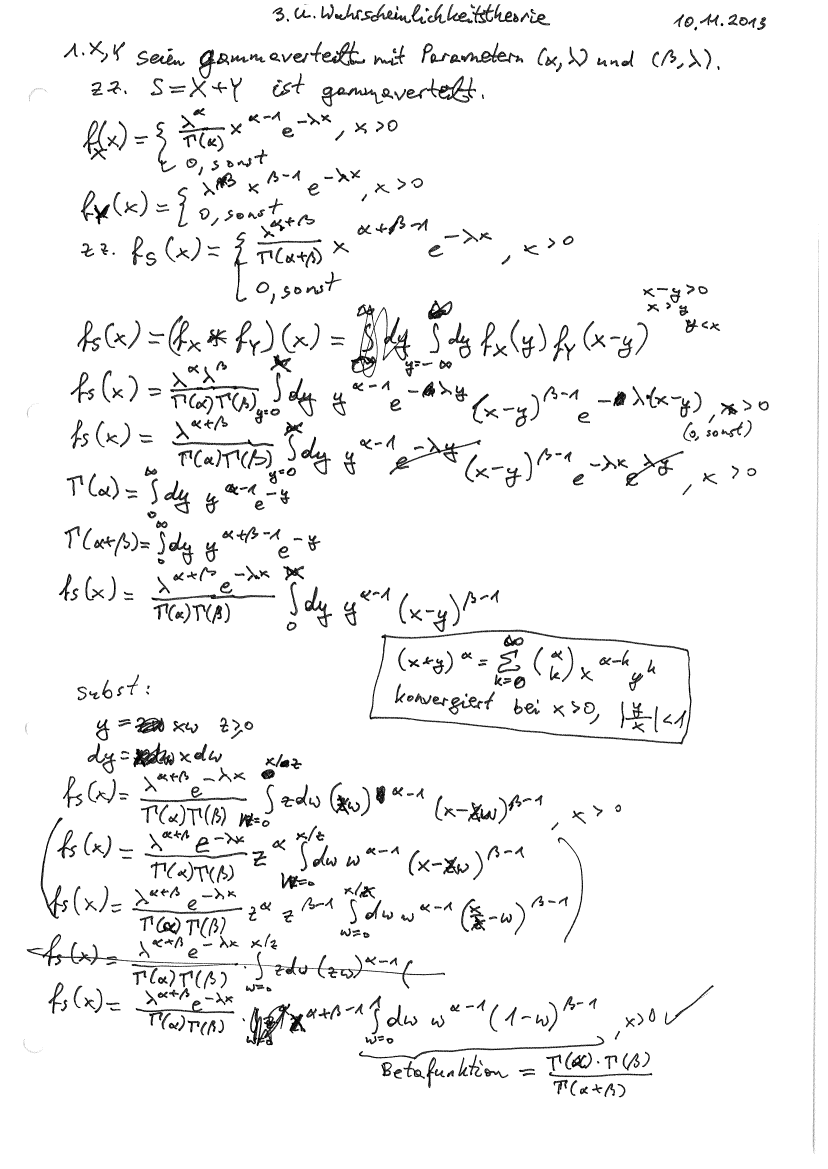 3. Ü. Wahrscheinlichkeitstheorie 10.11.2013
1. X,Y seien gammaverteilt mit Parametern (α,λ) und (β,λ).
zz. S=X+Y ist gammaverteilt.
f_X(x) = { λ^α/Γ(α) x^(α-1) e^(-λx), x>0
0, sonst
f_Y(x) = { λ^β x^(β-1) e^(-λx), x>0
0, sonst
zz. f_S(x) = { λ^(α+β)/Γ(α+β) x^(α+β-1) e^(-λx), x>0
0, sonst
x-y>0
x>y
y<x
f_S(x) = (f_X * f_Y)(x) = ∫_(y=-∞)^∞ dy f_X(y) f_Y(x-y)
f_S(x) = λ^α λ^β/Γ(α)Γ(β) ∫_(y=0)^x dy y^(α-1) e^(-λy) (x-y)^(β-1) e^(-λ(x-y)), x>0
(0, sonst)
f_S(x) = λ^(α+β)/Γ(α)Γ(β) ∫_(y=0)^x dy y^(α-1) e^(-λy) (x-y)^(β-1) e^(-λx) e^(λy), x>0
Γ(α) = ∫_0^∞ dy y^(α-1) e^(-y)
Γ(α+β) = ∫_0^∞ dy y^(α+β-1) e^(-y)
f_S(x) = λ^(α+β) e^(-λx)/Γ(α)Γ(β) ∫_0^x dy y^(α-1) (x-y)^(β-1)
(x+y)^α = Σ_(k=0)^∞ (α k) x^(α-k) y^k
konvergiert bei x>0, |y/x|<1
Subst:
y = xw z≥0
dy = x dw
f_S(x) = λ^(α+β) e^(-λx)/Γ(α)Γ(β) ∫_(w=0)^(x/z) z dw (zw)^(α-1) (x-zw)^(β-1), x>0
(f_S(x) = λ^(α+β) e^(-λx)/Γ(α)Γ(β) z^α ∫_(w=0)^(x/z) dw w^(α-1) (x-zw)^(β-1)
f_S(x) = λ^(α+β) e^(-λx)/Γ(α)Γ(β) z^α z^(β-1) ∫_(w=0)^(x/z) dw w^(α-1) (x/z-w)^(β-1))
f_S(x) = λ^(α+β) e^(-λx)/Γ(α)Γ(β) · ∫_(w=0)^(x/z) z dw (zw)^(α-1) (
f_S(x) = λ^(α+β) e^(-λx)/Γ(α)Γ(β) · x^(α+β-1) ∫_(w=0)^1 dw w^(α-1) (1-w)^(β-1), x>0 ✓
Betafunktion = Γ(α)·Γ(β)/Γ(α+β)